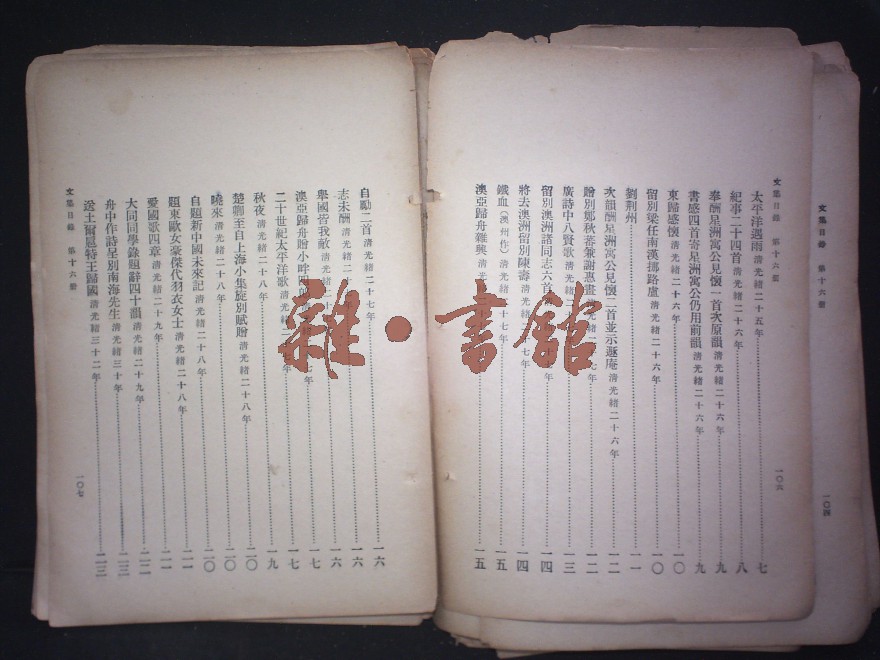 文集目錄 第十六册
一〇四
文集目錄 第十六册
太平洋遇雨 清光緒二十五年 七
紀事二十四首 清光緒二十六年 八
奉酬星洲寓公見懷一首次原韻 清光緒二十六年 九
書感四首寄星洲寓公仍用前韻 清光緒二十六年 九
東歸感懷 清光緒二十六年 一〇
留別梁任南漢挪路盧 清光緒二十六年 一〇
劉荆州 一一
次韻酬星洲寓公見懷二首並示遯庵 清光緒二十六年 一二
贈別鄭秋蕃兼謝惠畫 清光緒二十七年 一二
廣詩中八賢歌 清光緒 一三
留別澳洲諸同志六首 清光緒 十七年 一四
將去澳洲留別陳壽 清光緒 七年 一四
鐵血(澳洲作) 清光緒 十七年 一五
澳亞歸舟雜興 清光緒 一五
一〇六
自勵二首 清光緒二十七年 一六
志未酬 清光緒二十 一六
舉國皆我敵 清光緒二十 一七
澳亞歸舟贈小畔四 年 一七
二十世紀太平洋歌 清光緒 年 一九
秋夜 清光緒二十八年 二〇
楚卿至自上海小集旋別賦贈 清光緒二十八年 二〇
曉來 清光緒二十八年 二〇
自題新中國未來記 清光緒二十八年 二一
題東歐女豪傑代羽衣女士 清光緒二十八年 二一
愛國歌四章 清光緒二十九年 二一
大同同學錄題辭四十韻 清光緒二十九年 二二
舟中作詩呈別南海先生 清光緒三十年 二三
送土爾扈特王歸國 清光緒三十二年 二三
文集目錄 第十六册
一〇七
雜·書館